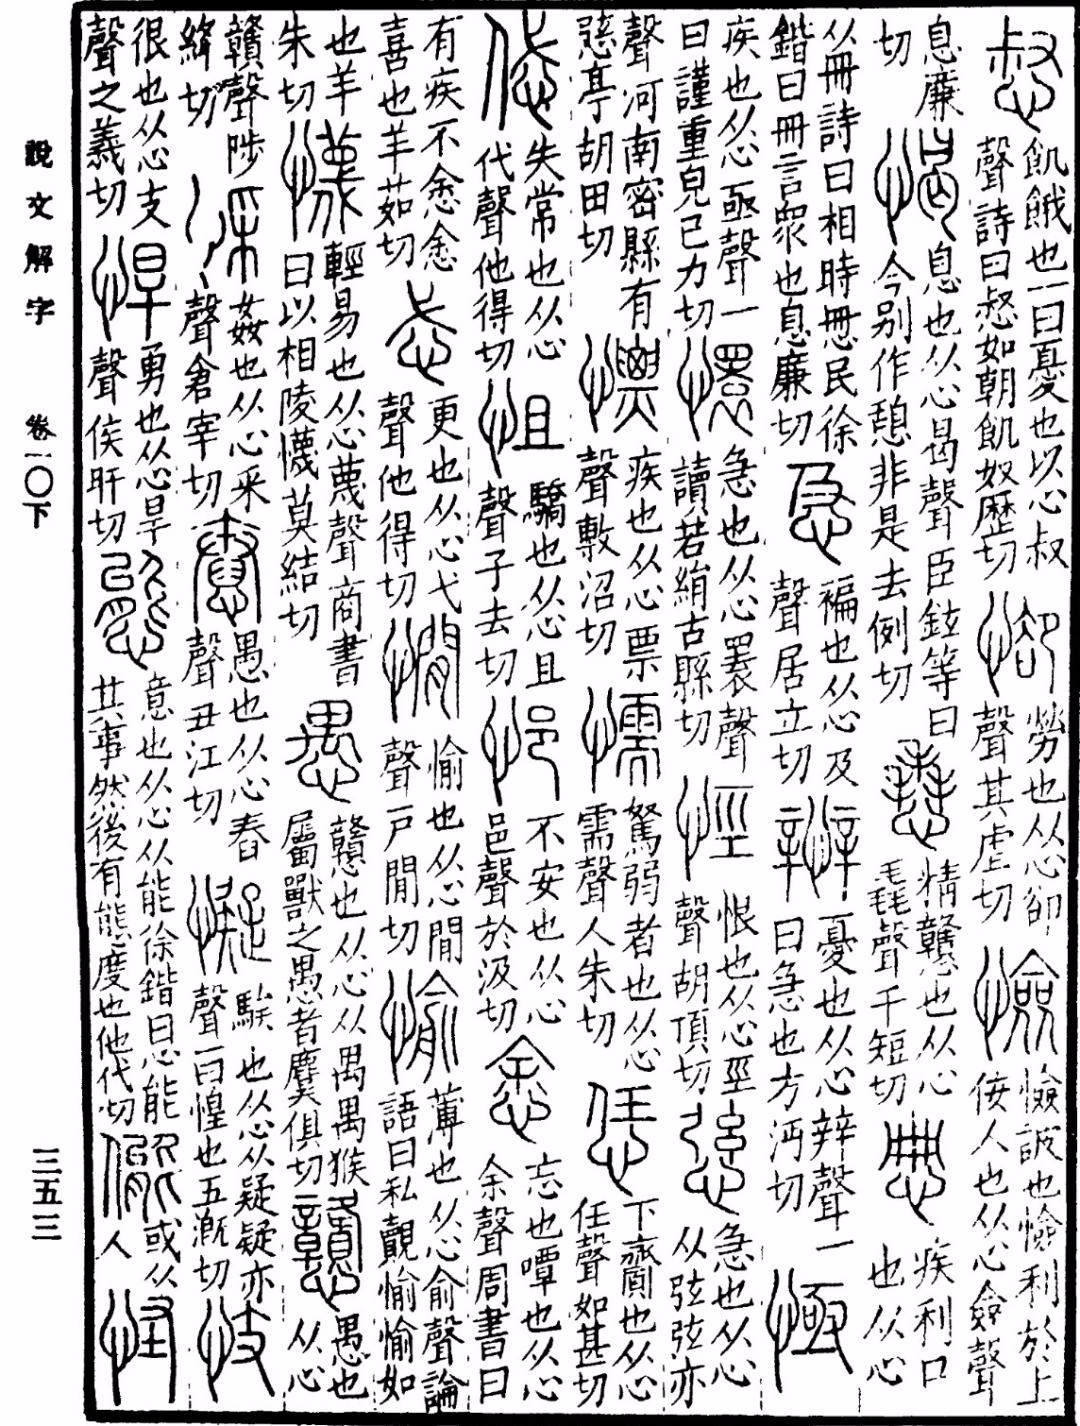 惄飢餓也一曰憂也从心叔聲詩曰惄如朝飢奴歷切㥘勞也从心卻聲其虐切憸憸詖也憸利於上佞人也从心僉聲
息廉切愒息也从心曷聲臣鉉等曰今別作憩非是去例切精戇也从心毳聲千短切疾利口也从心
从冊詩曰相時民徐鍇曰冊言衆也息廉切急褊也从心及聲居立切憂也从心辡聲一曰急也方沔切㥛
疾也从心亟聲一曰謹重皃己力切懁急也从心瞏聲讀若絹古縣切恨也从心巠聲胡頂切急也从心从弦弦亦
聲河南密縣有亭胡田切慓疾也从心票聲敷沼切懦駑弱者也从心需聲人朱切恁下齎也从心任聲如甚切
失常也从心代聲他得切怚驕也从心且聲子去切悒不安也从心邑聲於汲切悆忘也嘾也从心余聲周書曰
有疾不悆悆喜也羊茹切忒更也从心弋聲他得切憪愉也从心閒聲戶閒切愉薄也从心俞聲論語曰私覿愉愉如
也羊朱切懱輕易也从心蔑聲商書曰以相陵懱莫結切愚戇也从心从禺禺猴屬獸之愚者麌俱切戇愚也从心
贛聲陟絳切姦也从心采聲倉宰切惷愚也从心舂聲丑江切懝騃也从心从疑疑亦聲一曰惶也五溉切忮
很也从心支聲之義切悍勇也从心旱聲侯旰切態意也从心从能徐鍇曰心能其事然後有態度也他代切或从人怪
說文解字 卷一〇下 三五三